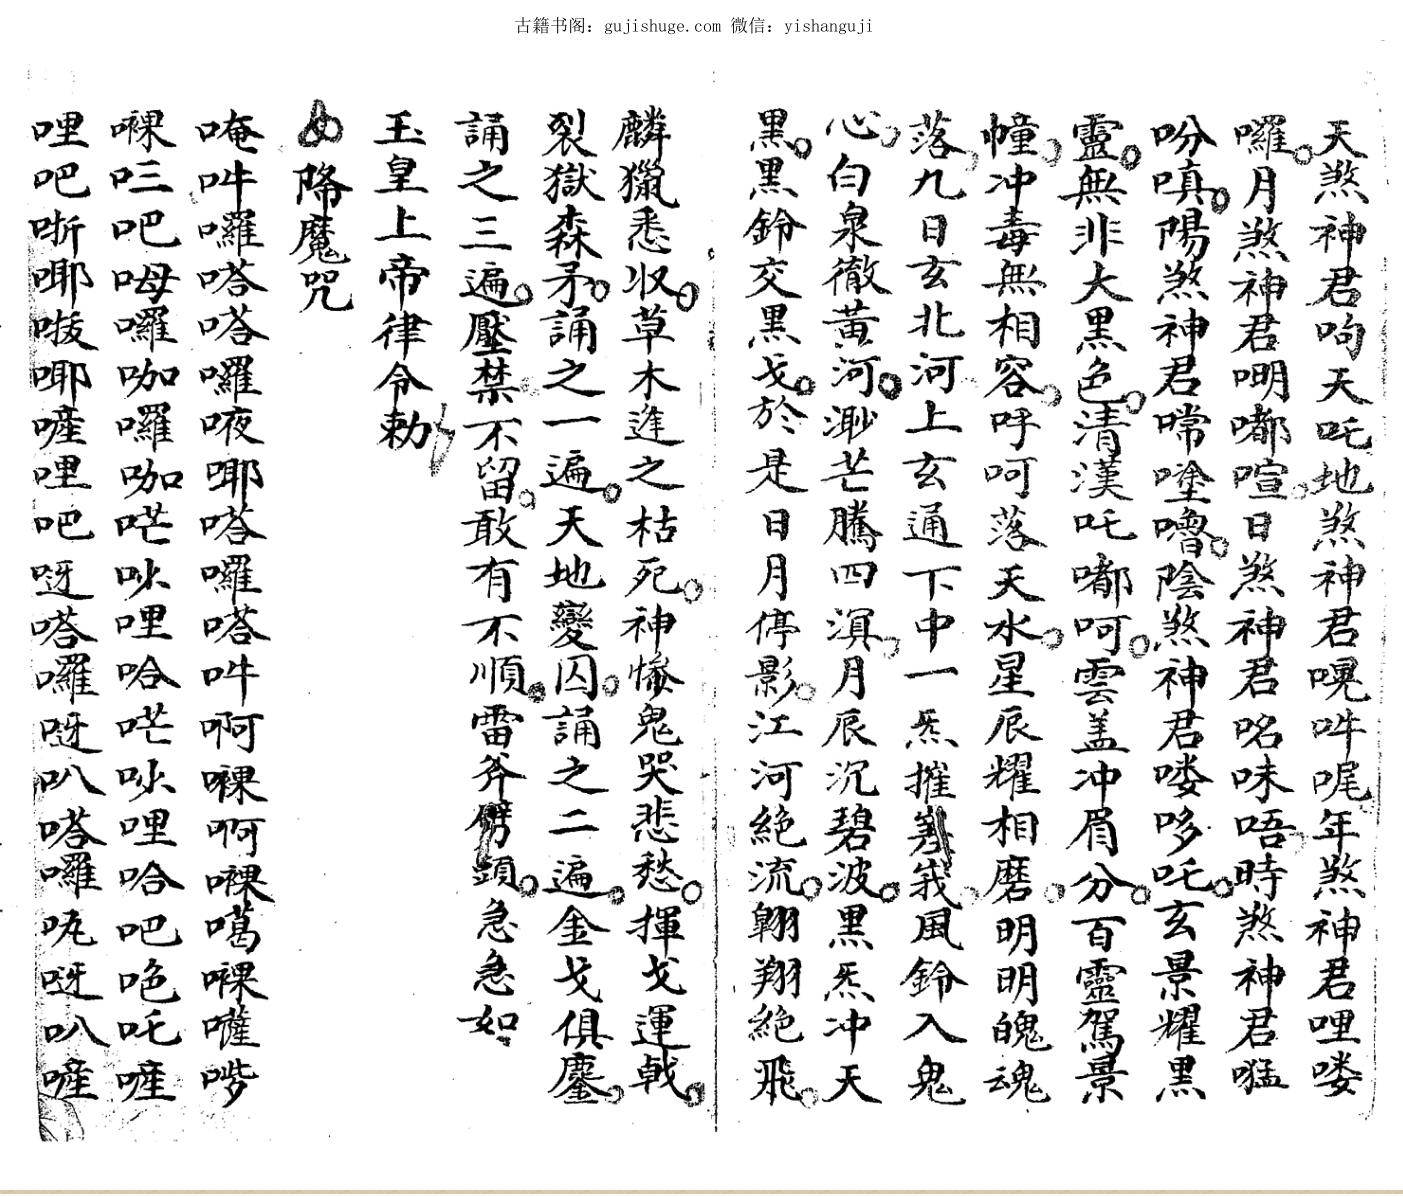 古籍书阁：gujishuge.com 微信：yishanguji
天煞神君呴天吒地煞神君㖠吽呢年煞神君哩喽
囉月煞神君嘲嘟喧日煞神君咯味唔時煞神君猛
吩嗔陽煞神君嘗噇嚕陰煞神君喽哆吒玄景耀黑
靈無非大黑色清漢吒嘟呵雲盖冲眉分百靈駕景
幢冲毒無相容呼呵落天水星辰耀相磨明明魄魂
落九日玄北河上玄通下中一炁摧羗我風鈴入鬼
心白泉徹黃河渺芒騰四溟月辰沉碧波黑炁冲天
黑黑鈴交黑戈於是日月停影江河絕流翱翔絕飛
麟獵悉收草木進之枯死神慘鬼哭悲愁揮戈運戟
裂獄森矛誦之一遍天地變囚誦之二遍金戈俱鏖
誦之三遍壓禁不留敢有不順雷斧劈頭急急如
玉皇上帝律令勅
降魔咒
唵吽囉嗒嗒囉㖡哪嗒囉嗒吽啊啊噶嚾
吧呣囉咖囉咖吣哩哈吣哩哈吧吒
哩吧哳哪哪哩吧呀嗒囉呀叭嗒囉呀叭